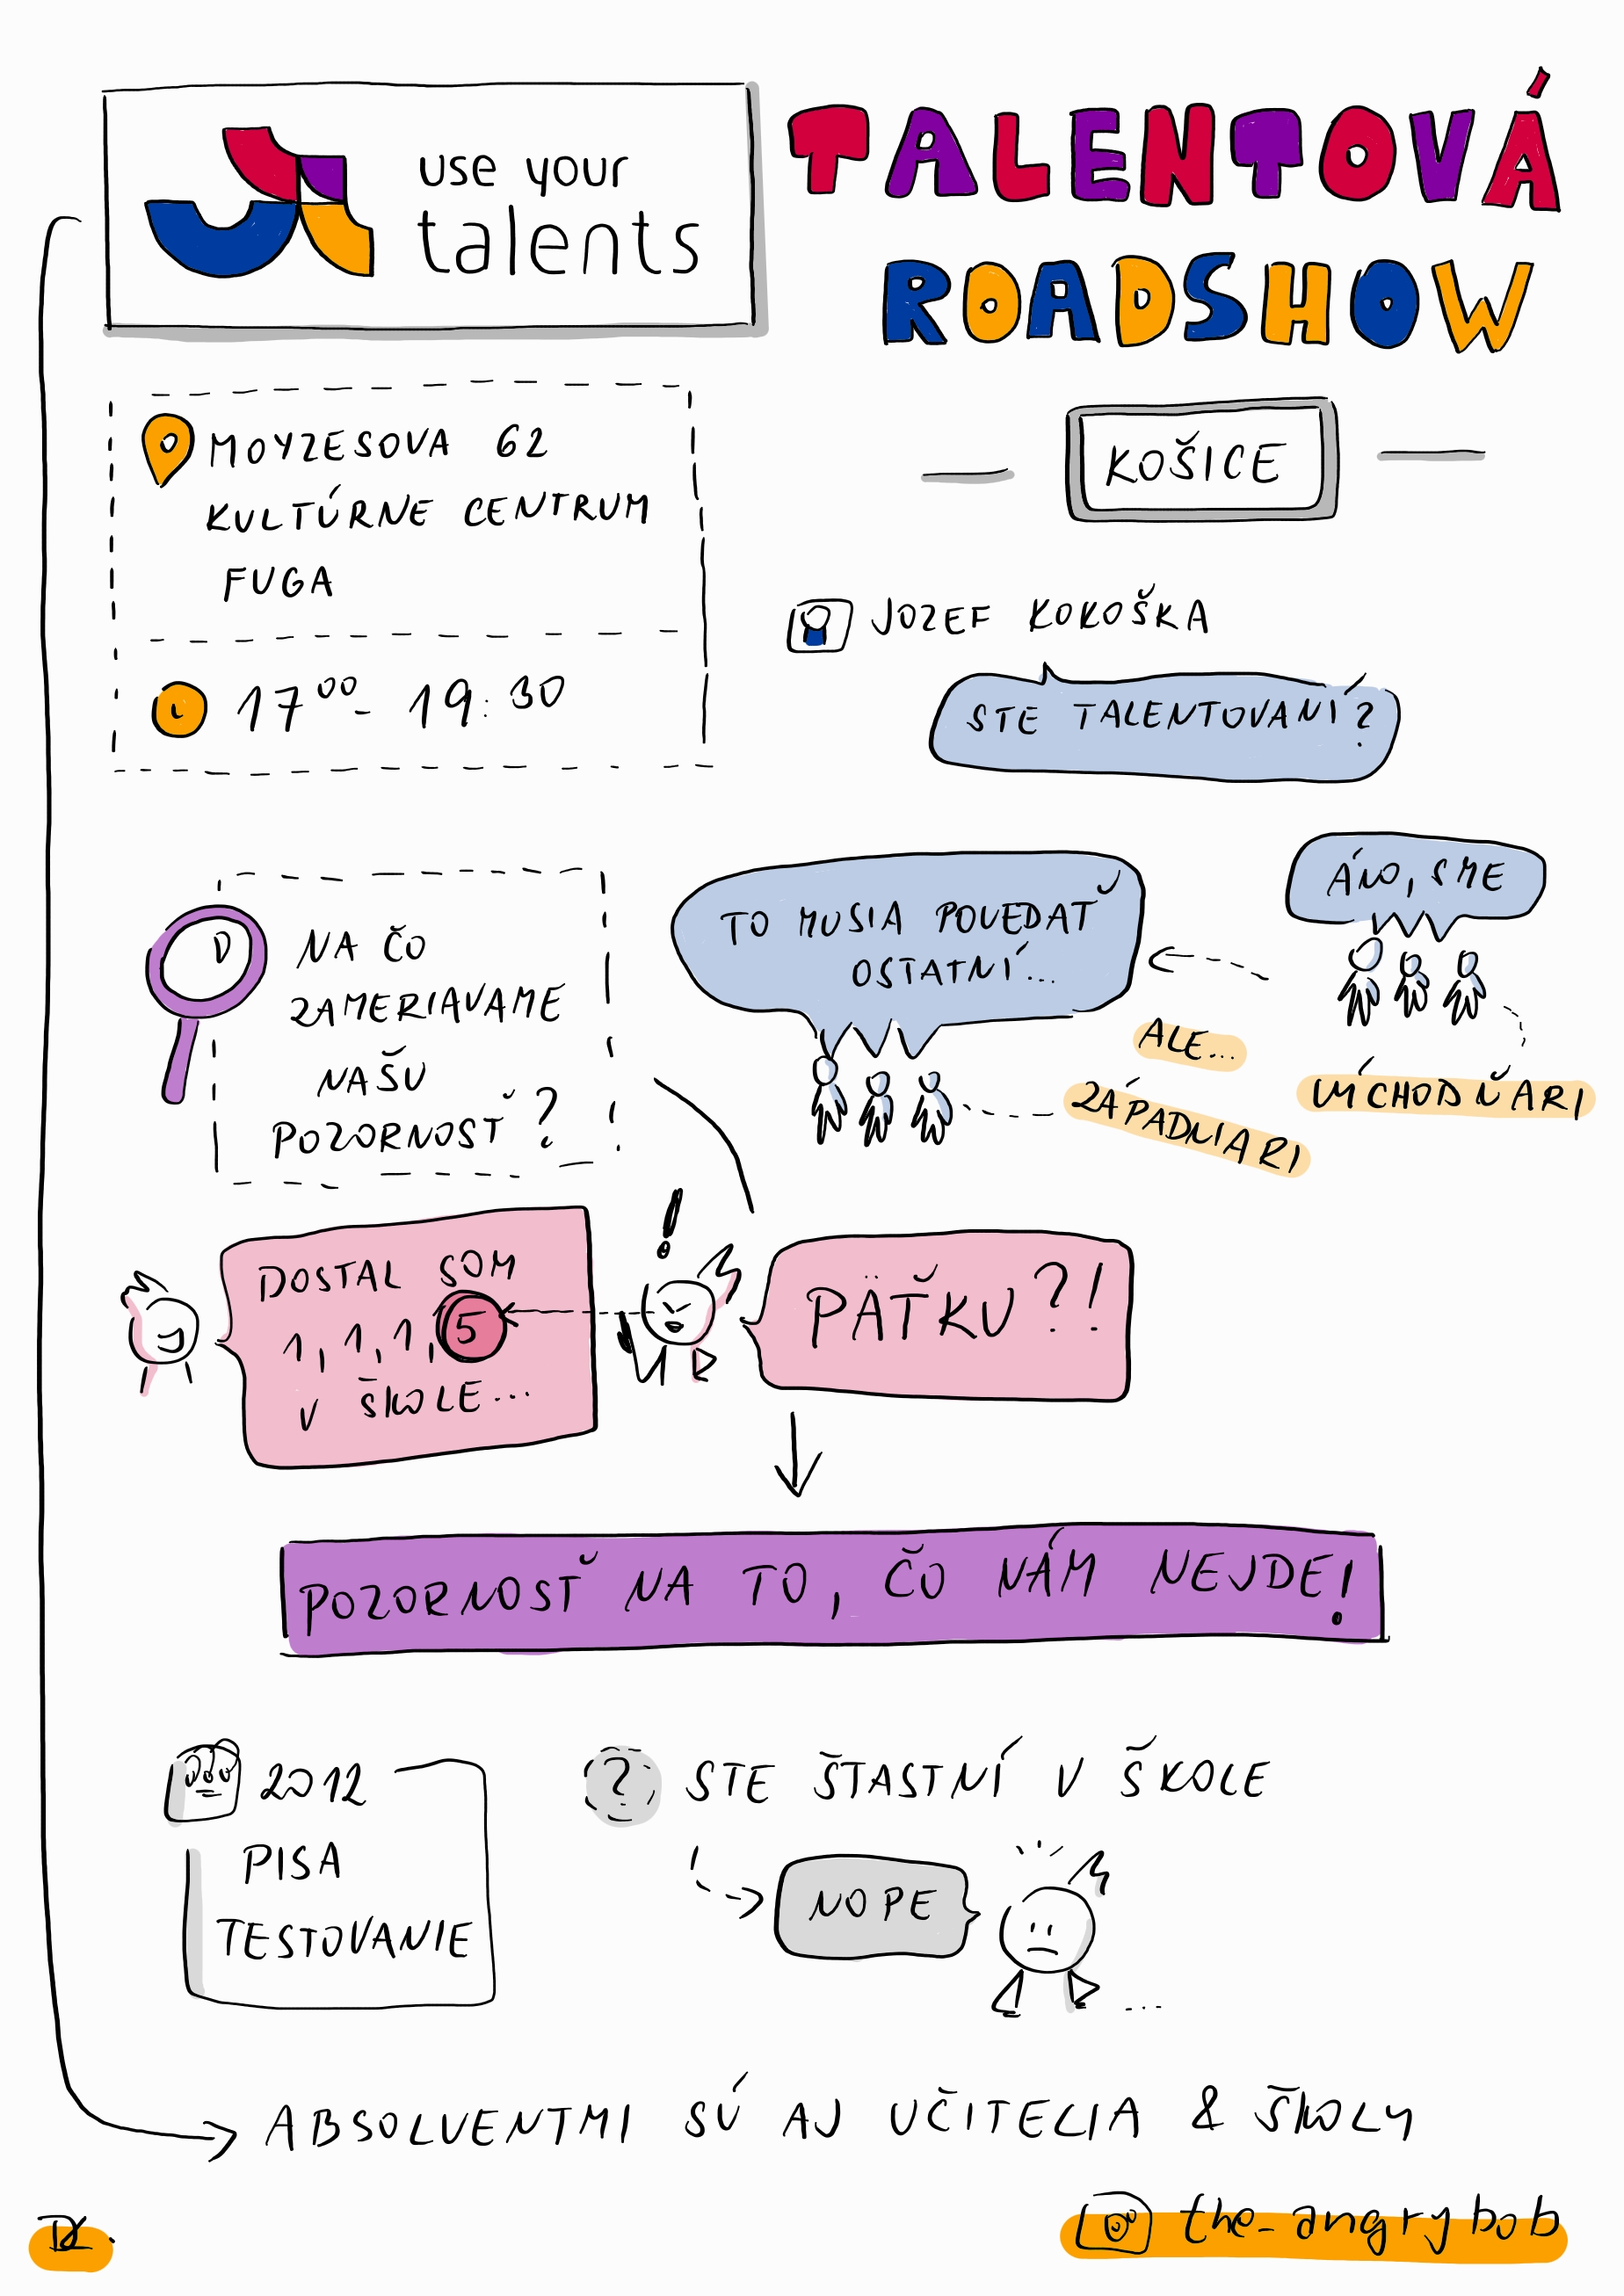 use your
talents
TALENTOVÁ
ROADSHOW
KOŠICE
MOYZESOVA 62
KULTÚRNE CENTRUM
FUGA
17⁰⁰ - 19:30
JOZEF KOKOŠKA
STE TALENTOVANÍ?
ÁNO, SME
VÝCHODŇARI
TO MUSIA POVEDAŤ
OSTATNÍ...
ALE...
ZÁPADNIARI
NA ČO
ZAMERIAVAME
NAŠU
POZORNOSŤ?
DOSTAL SOM
1, 1, 1, 5
V ŠKOLE...
!
PÄŤKU?!
POZORNOSŤ NA TO, ČO NÁM NEJDE!
2012
PISA
TESTOVANIE
? STE ŠTASTNÍ V ŠKOLE
NOPE
...
ABSOLVENTMI SÚ AJ UČITELIA & ŠKOLY
the_angrybob